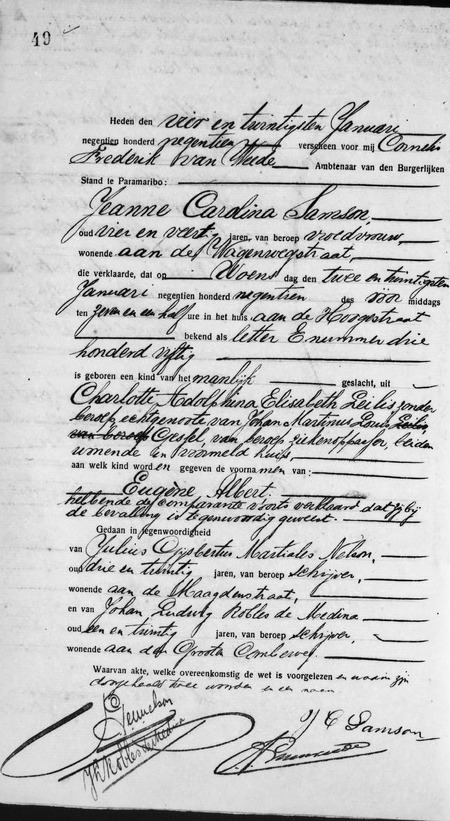 49
Heden den vier en twintigsten Januari
negentien honderd negentien verscheen voor mij Cornelis
Frederik van Ambtenaar van den Burgerlijken
Stand te Paramaribo:
Jeanne Carolina Samson
oud vier en veertig jaren, van beroep vroedvrouw,
wonende aan de Wagenwegstraat,
die verklaarde, dat op Woens dag den twee en twintigsten
Januari negentien honderd negentien des voor middags
ten zeven en een half ure in het huis aan de Hoogestraat
bekend als letter E nummer drie
honderd vijftig
is geboren een kind van het manlijk geslacht, uit
Charlotte Adolphina Elisabeth zonder
beroep echtgenoote van Johan Martinus Louis
van beroep Gessel, van beroep ziekenoppasser, beiden
wonende in voormeld huis,
aan welk kind word en gegeven de voorna men van:
Eugène Albert.
hebbende de comparante voorts verklaard dat zij bij
de bevalling is tegenwoordig geweest.
Gedaan in tegenwoordigheid
van Julius Gijsbertus Martiales Nelson,
oud drie en twintig jaren, van beroep schrijver,
wonende aan de Maagdenstraat,
en van Johan Ludwig Robles de Medina
oud een en twintig jaren, van beroep schrijver,
wonende aan den Grooten Combeweg.
Waarvan akte, welke overeenkomstig de wet is voorgelezen en waarin zijn
doorgehaald twee woorden en een naam
J C Samson
JL Robles de Medina